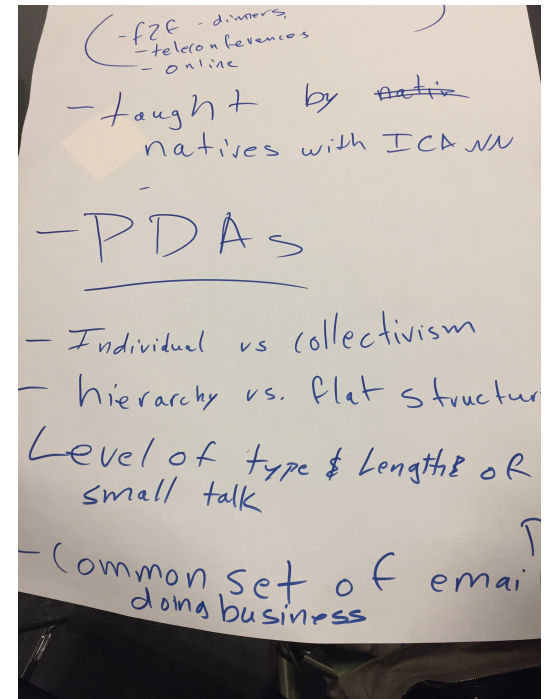 ( - f2f - dinners, )
- teleconferences
- online
- taught by nativ
natives with ICANN
-
- PDAs
- Individual vs collectivism
- hierarchy vs. flat structur
Level of type & Length & of
small talk
- Common set of emai
doing business